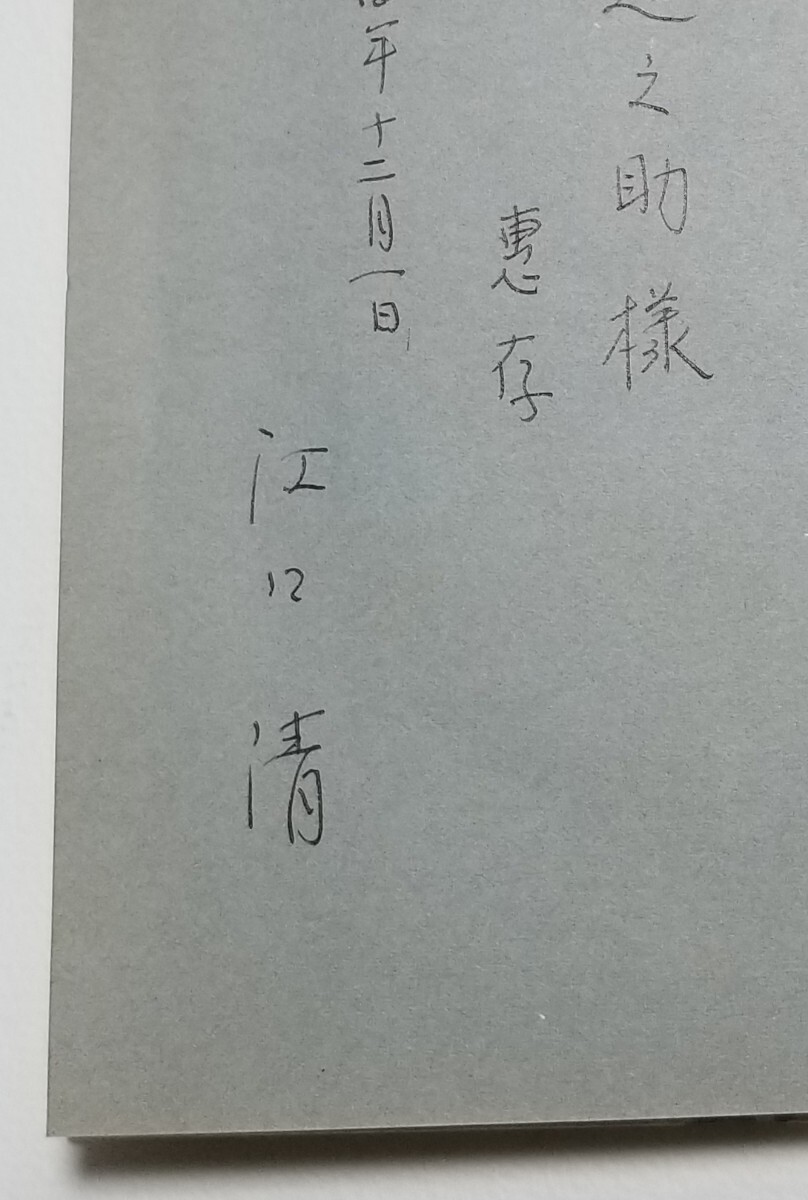 之助様
惠存
年十二月一日
江口清